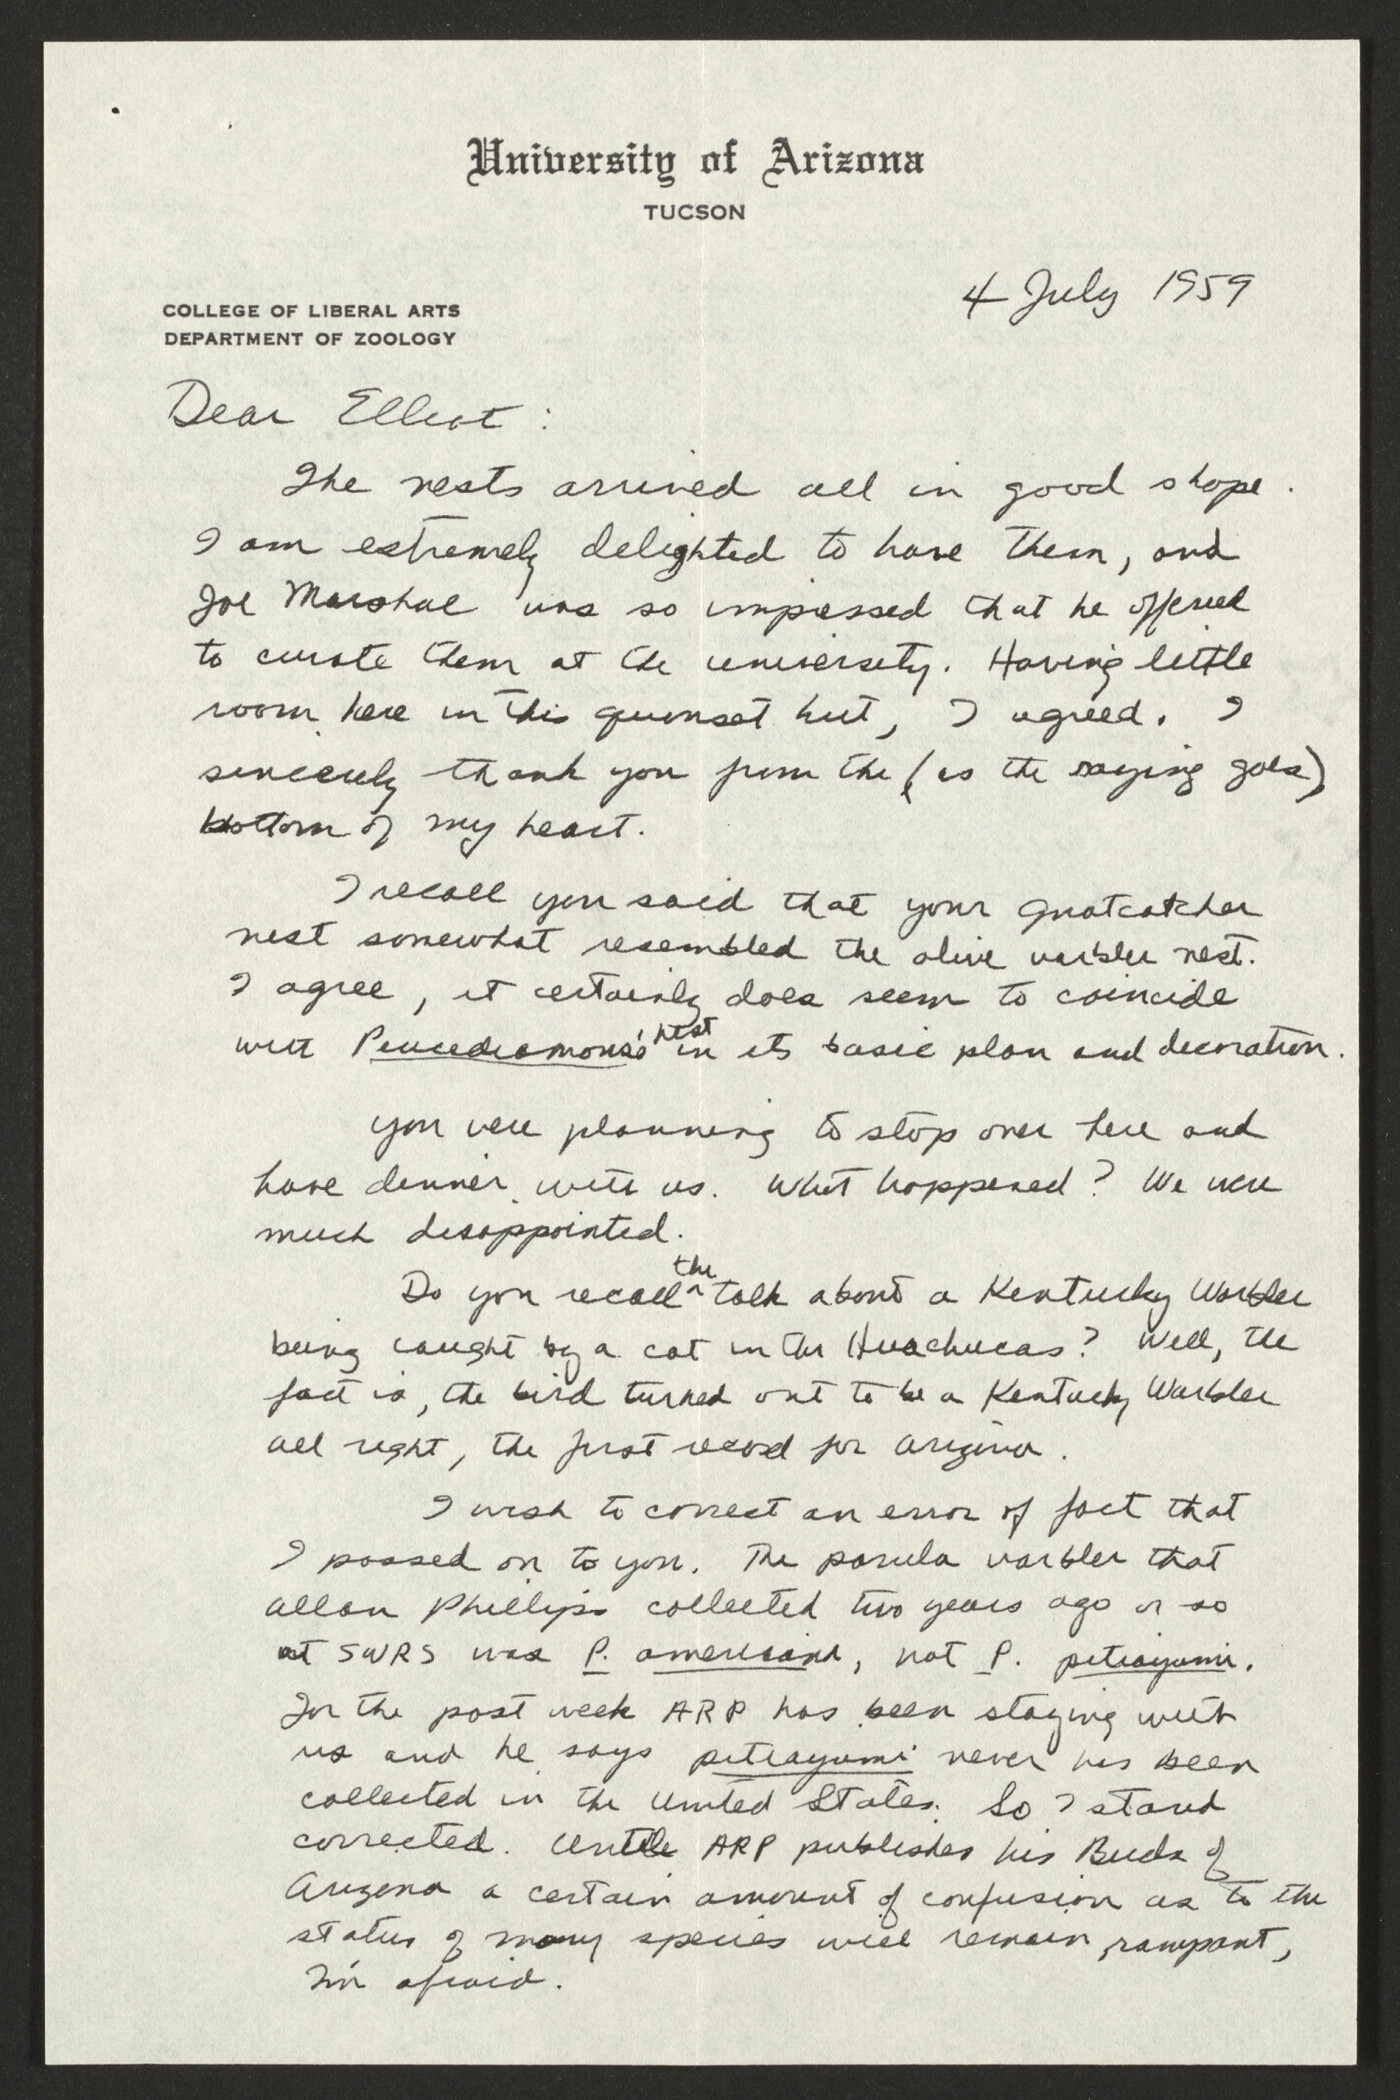 University of Arizona
TUCSON
4 July 1959
COLLEGE OF LIBERAL ARTS
DEPARTMENT OF ZOOLOGY
Dear Elliot:
The nests arrived all in good shape.
I am extremely delighted to have them, and
Joe Marshal was so impressed that he offered
to curate them at the university. Having little
room here in this quonset hut, I agreed. I
sincerely thank you from the (as the saying goes)
bottom of my heart.
I recall you said that your gnatcatcher
nest somewhat resembled the olive warbler nest.
I agree, it certainly does seem to coincide
with Peucedramous's nest in its basic plan and decoration.
You were planning to stop over here and
have dinner with us. What happened? We were
much disappointed.
Do you recall the talk about a Kentucky Warbler
being caught by a cat in the Huachucas? Well, the
fact is, the bird turned out to be a Kentucky Warbler
all right, the first record for Arizona.
I wish to correct an error of fact that
I passed on to you. The parula warbler that
Allan Phillips collected two years ago or so
at SWRS was P. americana, not P. pitiayumi.
For the past week ARP has been staying with
us and he says pitiayumi never has been
collected in the United States. So I stand
corrected. Until ARP publishes his Birds of
Arizona a certain amount of confusion as to the
status of many species will remain rampant,
I'm afraid.